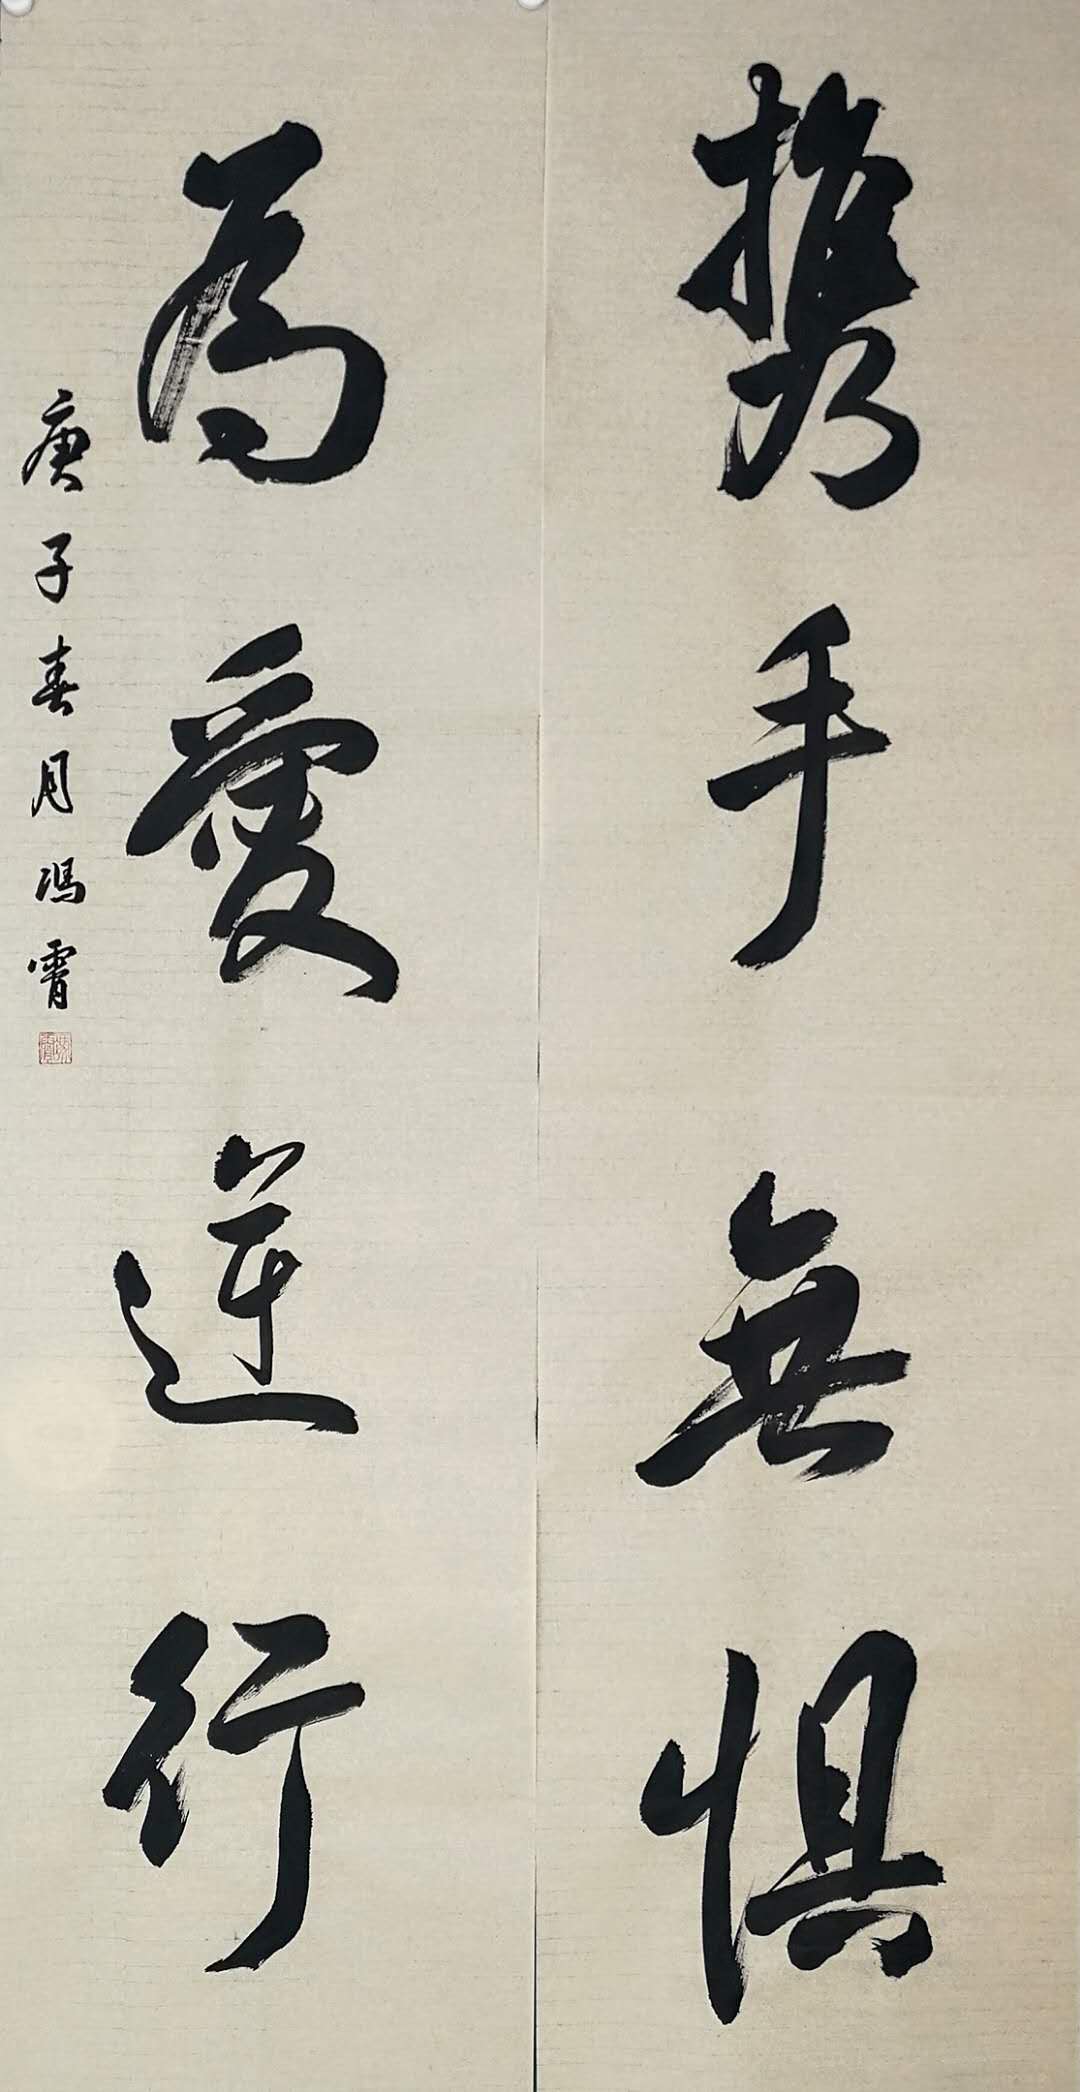 携手無惧
為愛逆行
庚子春月冯霄